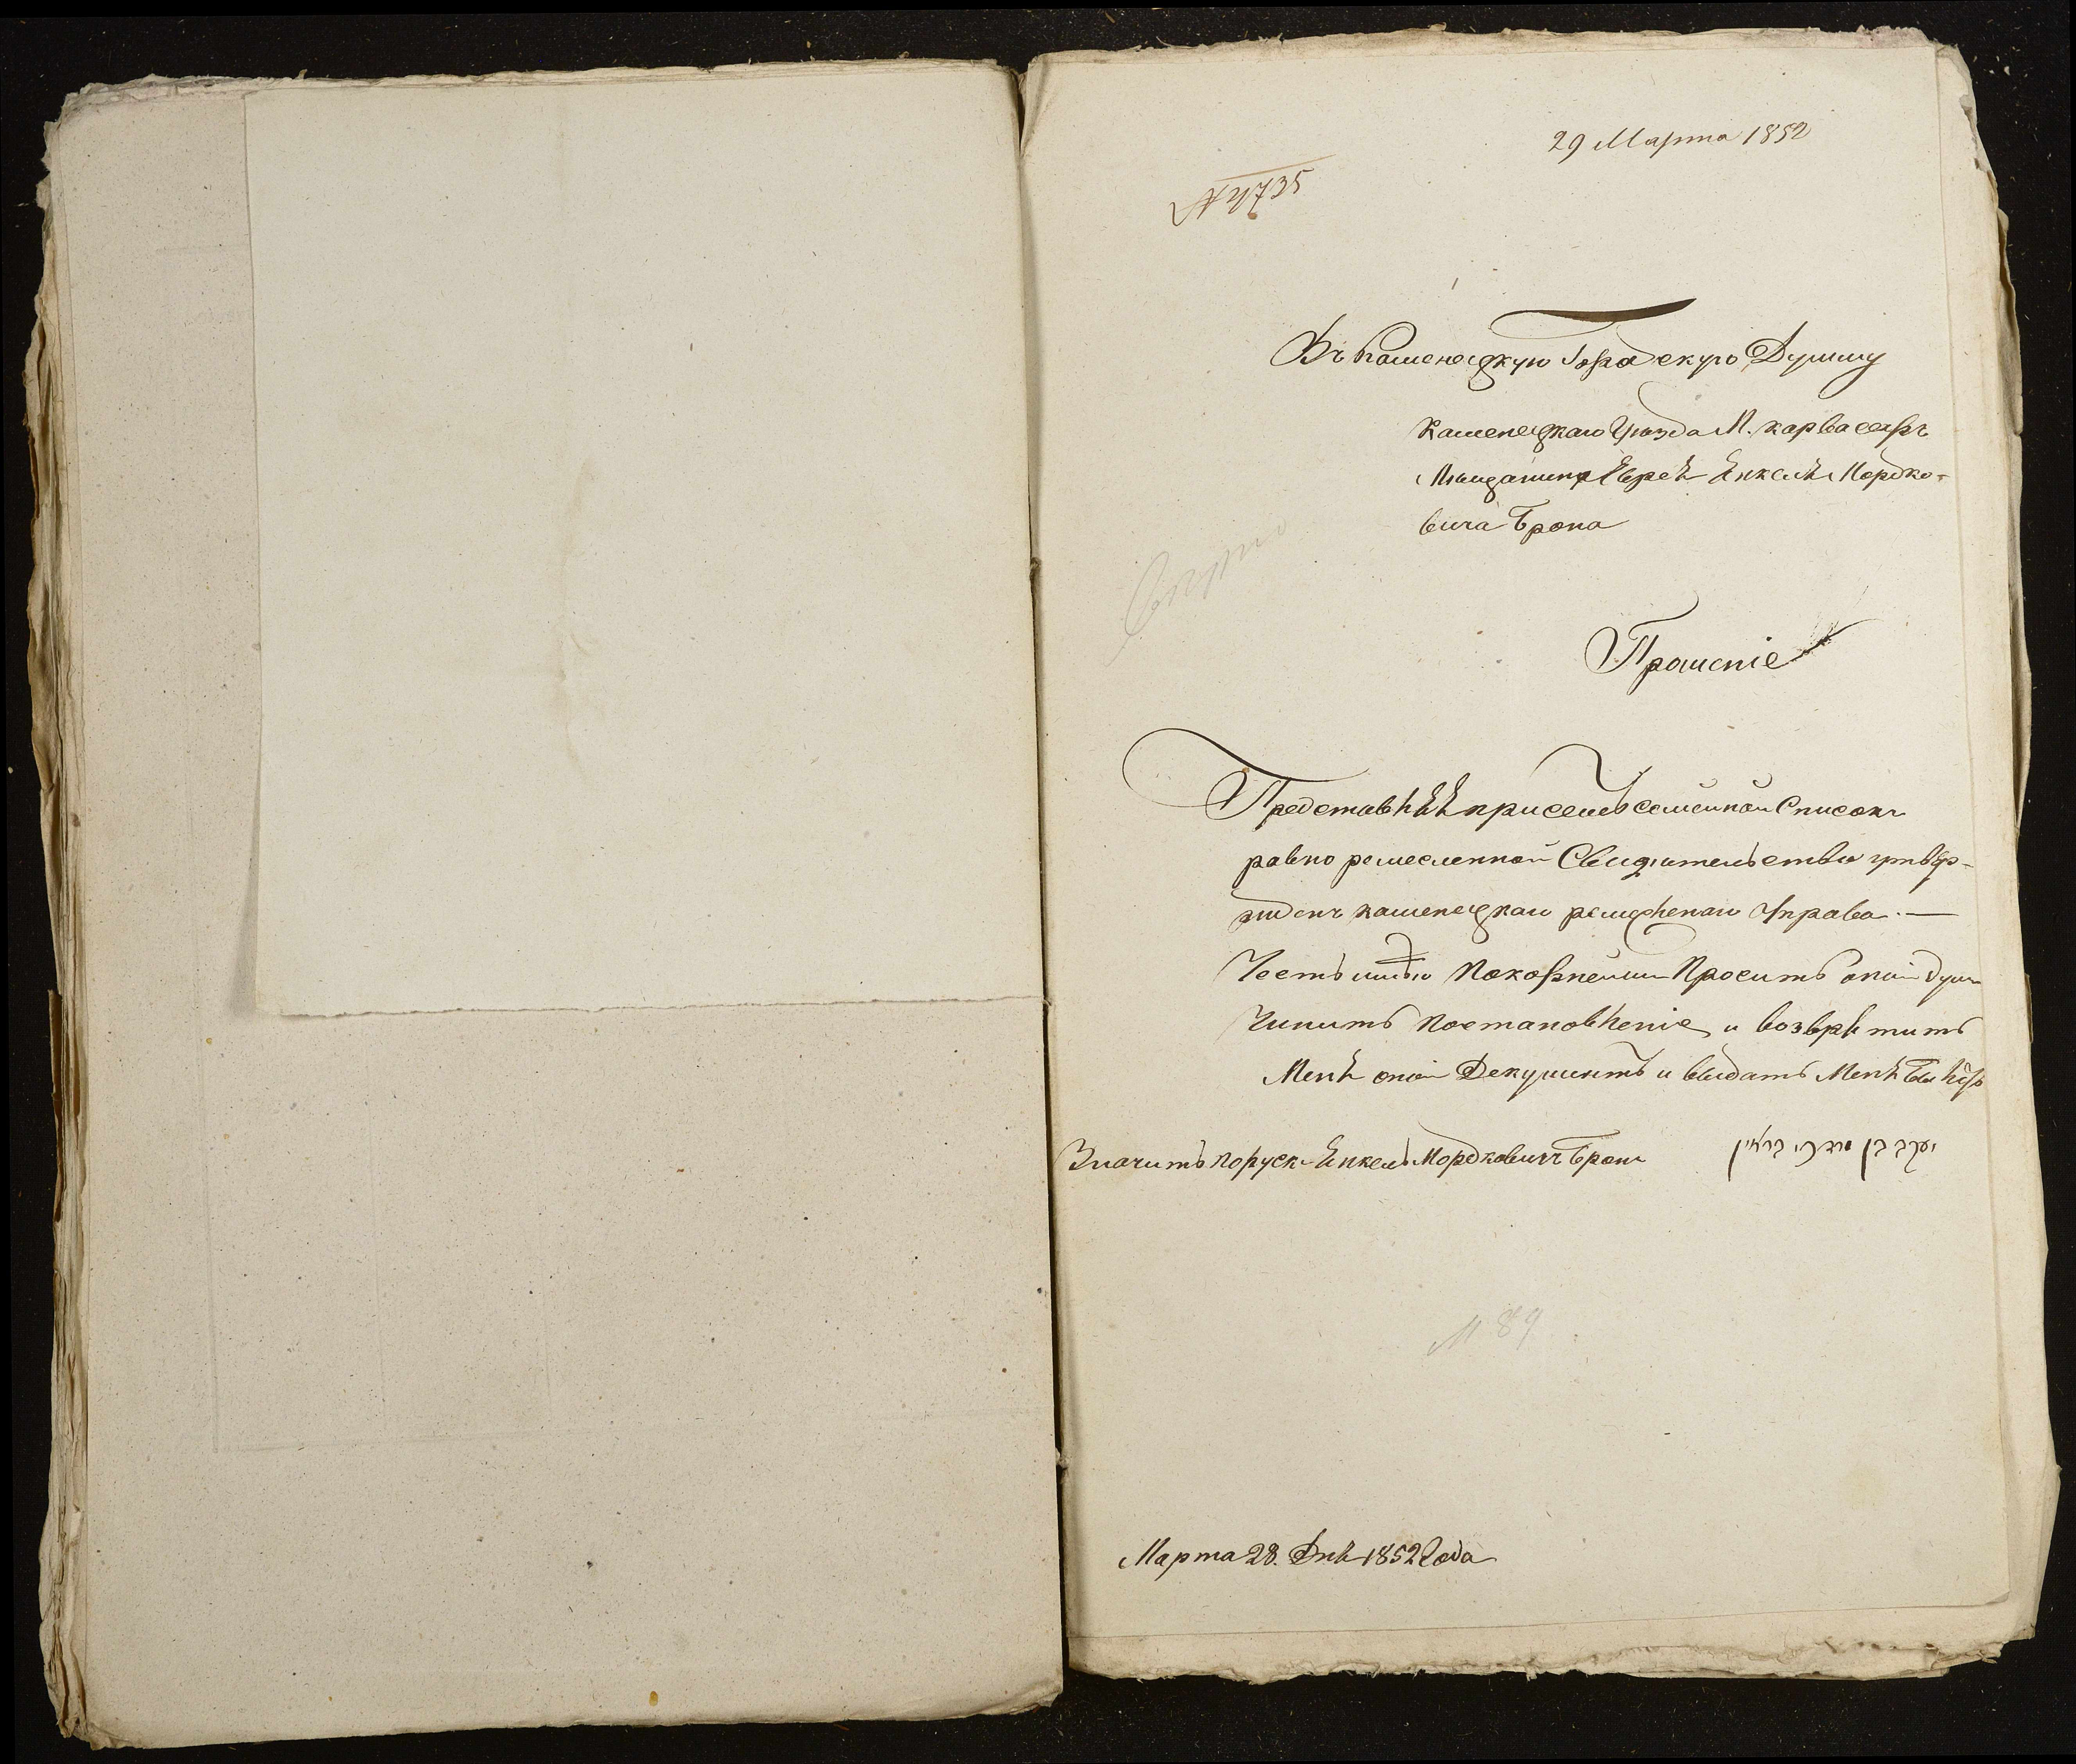 29 Марта 1852
№ 4735
Въ Каменецкую Городскую Думу
Каменецкаго Уѣзда М. карвасаръ
Мещанина Еврея Янкеля Мордко-
вича Брона
Прошеніе
Представляя присемъ семейной Списокъ
равно ремесленной Свидѣтельство утвер-
жденъ каменецкаго ремесленаго Управа. —
Честь имѣю Покорнейши Просить оной Дум
Чинить Постановленіе и возвратить
Меня оной Документъ и выдать Меня
Значитъ поруск. Янкель Мордковичъ Брон
יעקב בן מרדכי בראן
№ 89
Марта 28. Дня 1852 Года